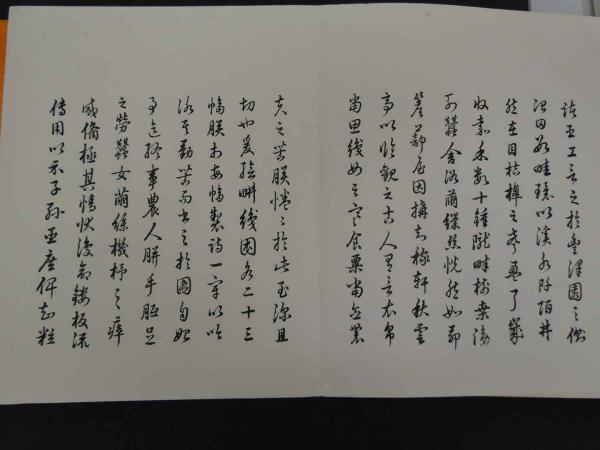 諸臣工言之於豐澤園之側
治田數畦環以溪水阡陌井
然在目桔槔之聲盈耳歲
收嘉禾數十鍾隴畔樹桑傍
列蠶舍浴繭繅絲恍然如茆
簷蔀屋因構知稼軒秋雲
亭以臨觀之古人有言衣帛
當思織女之寒食粟當念農
夫之苦朕惓惓於此至深且
切也爰繪耕織圖各二十三
幅朕於每幅製詩一章以吟
詠其勤苦而書之於圖自始
事迄終事農人胼手胝足
之勞蠶女繭絲機杼之瘁
咸備極其情狀復命鏤板流
傳用以示子孫臣庶俾知粒